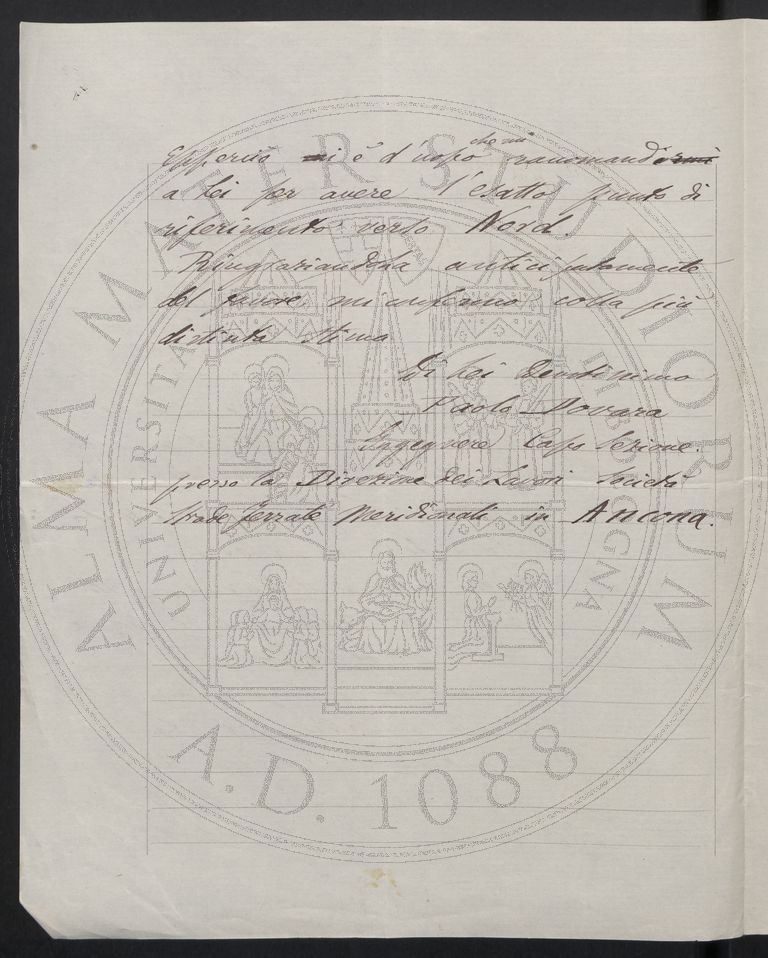 Epperciò mi è d'uopo che mi raccomandi
a Lei per avere l'esatto punto di
riferimento verso Nord.
Ringraziandola anticipatamente
del favore mi confermo colla più
distinta stima
Di Lei Devotissimo
Paolo Dovara
Ingegnere Capo Sezione.
presso la Direzione dei Lavori Società
Strade ferrate Meridionali in Ancona.
ALMA MATER STUDIORUM
UNIVERSITA
BOLOGNA
A.D. 1088